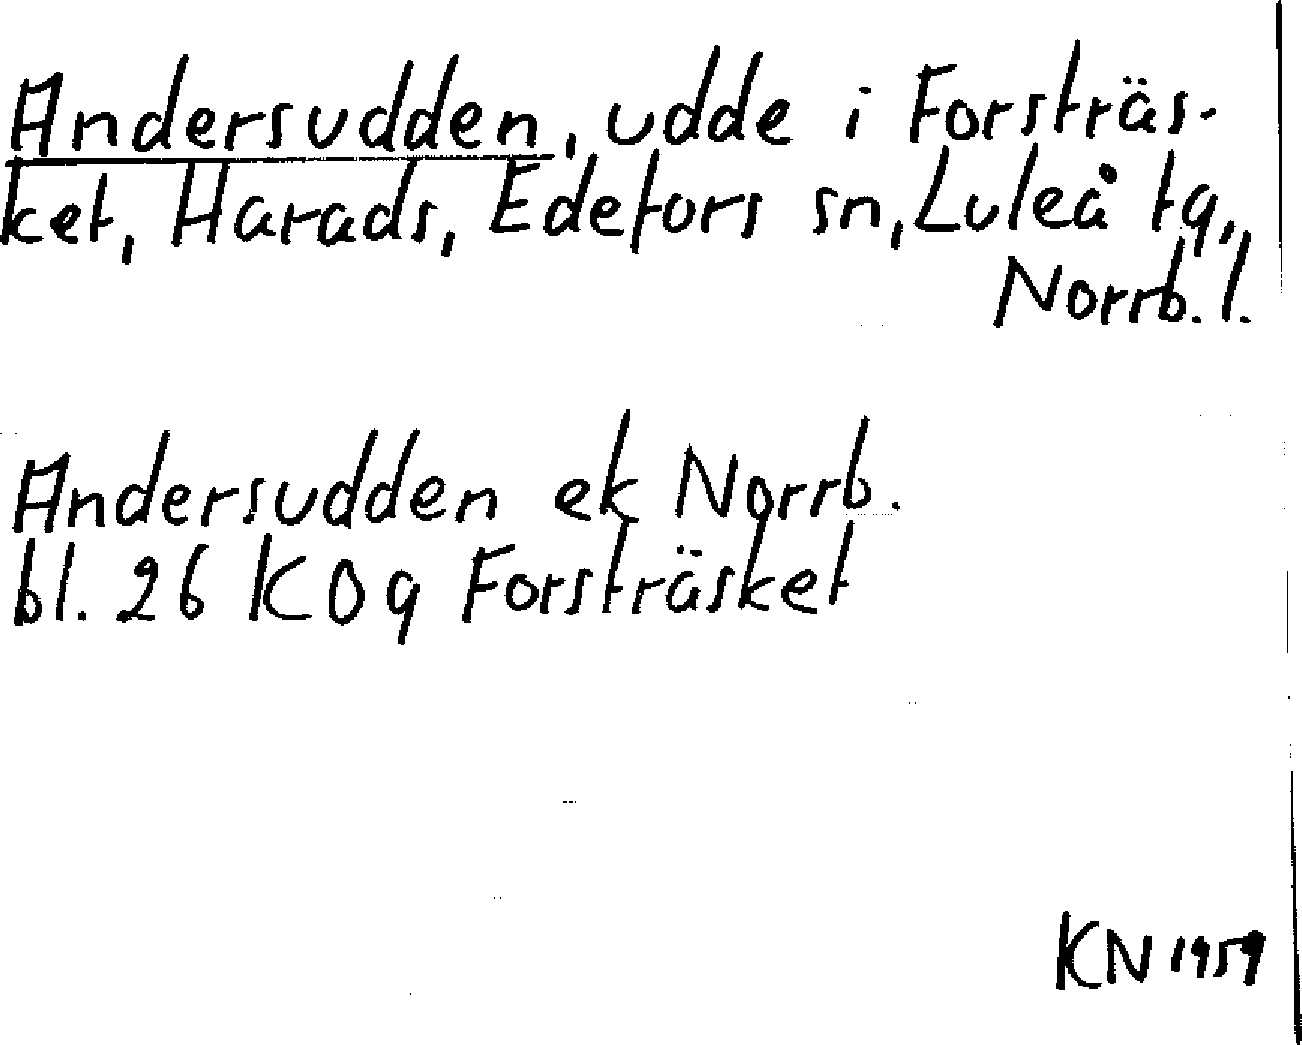 Andersudden, udde i Forsträs-
ket, Harads, Edefors sn, Luleå tg,
Norrb. l.
Andersudden ek Norrb.
bl. 26 KO9 Forsträsket
KN 1959